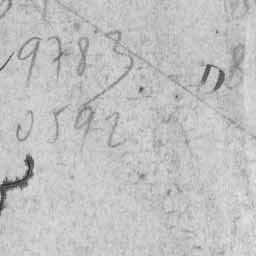 9783 D8
0592